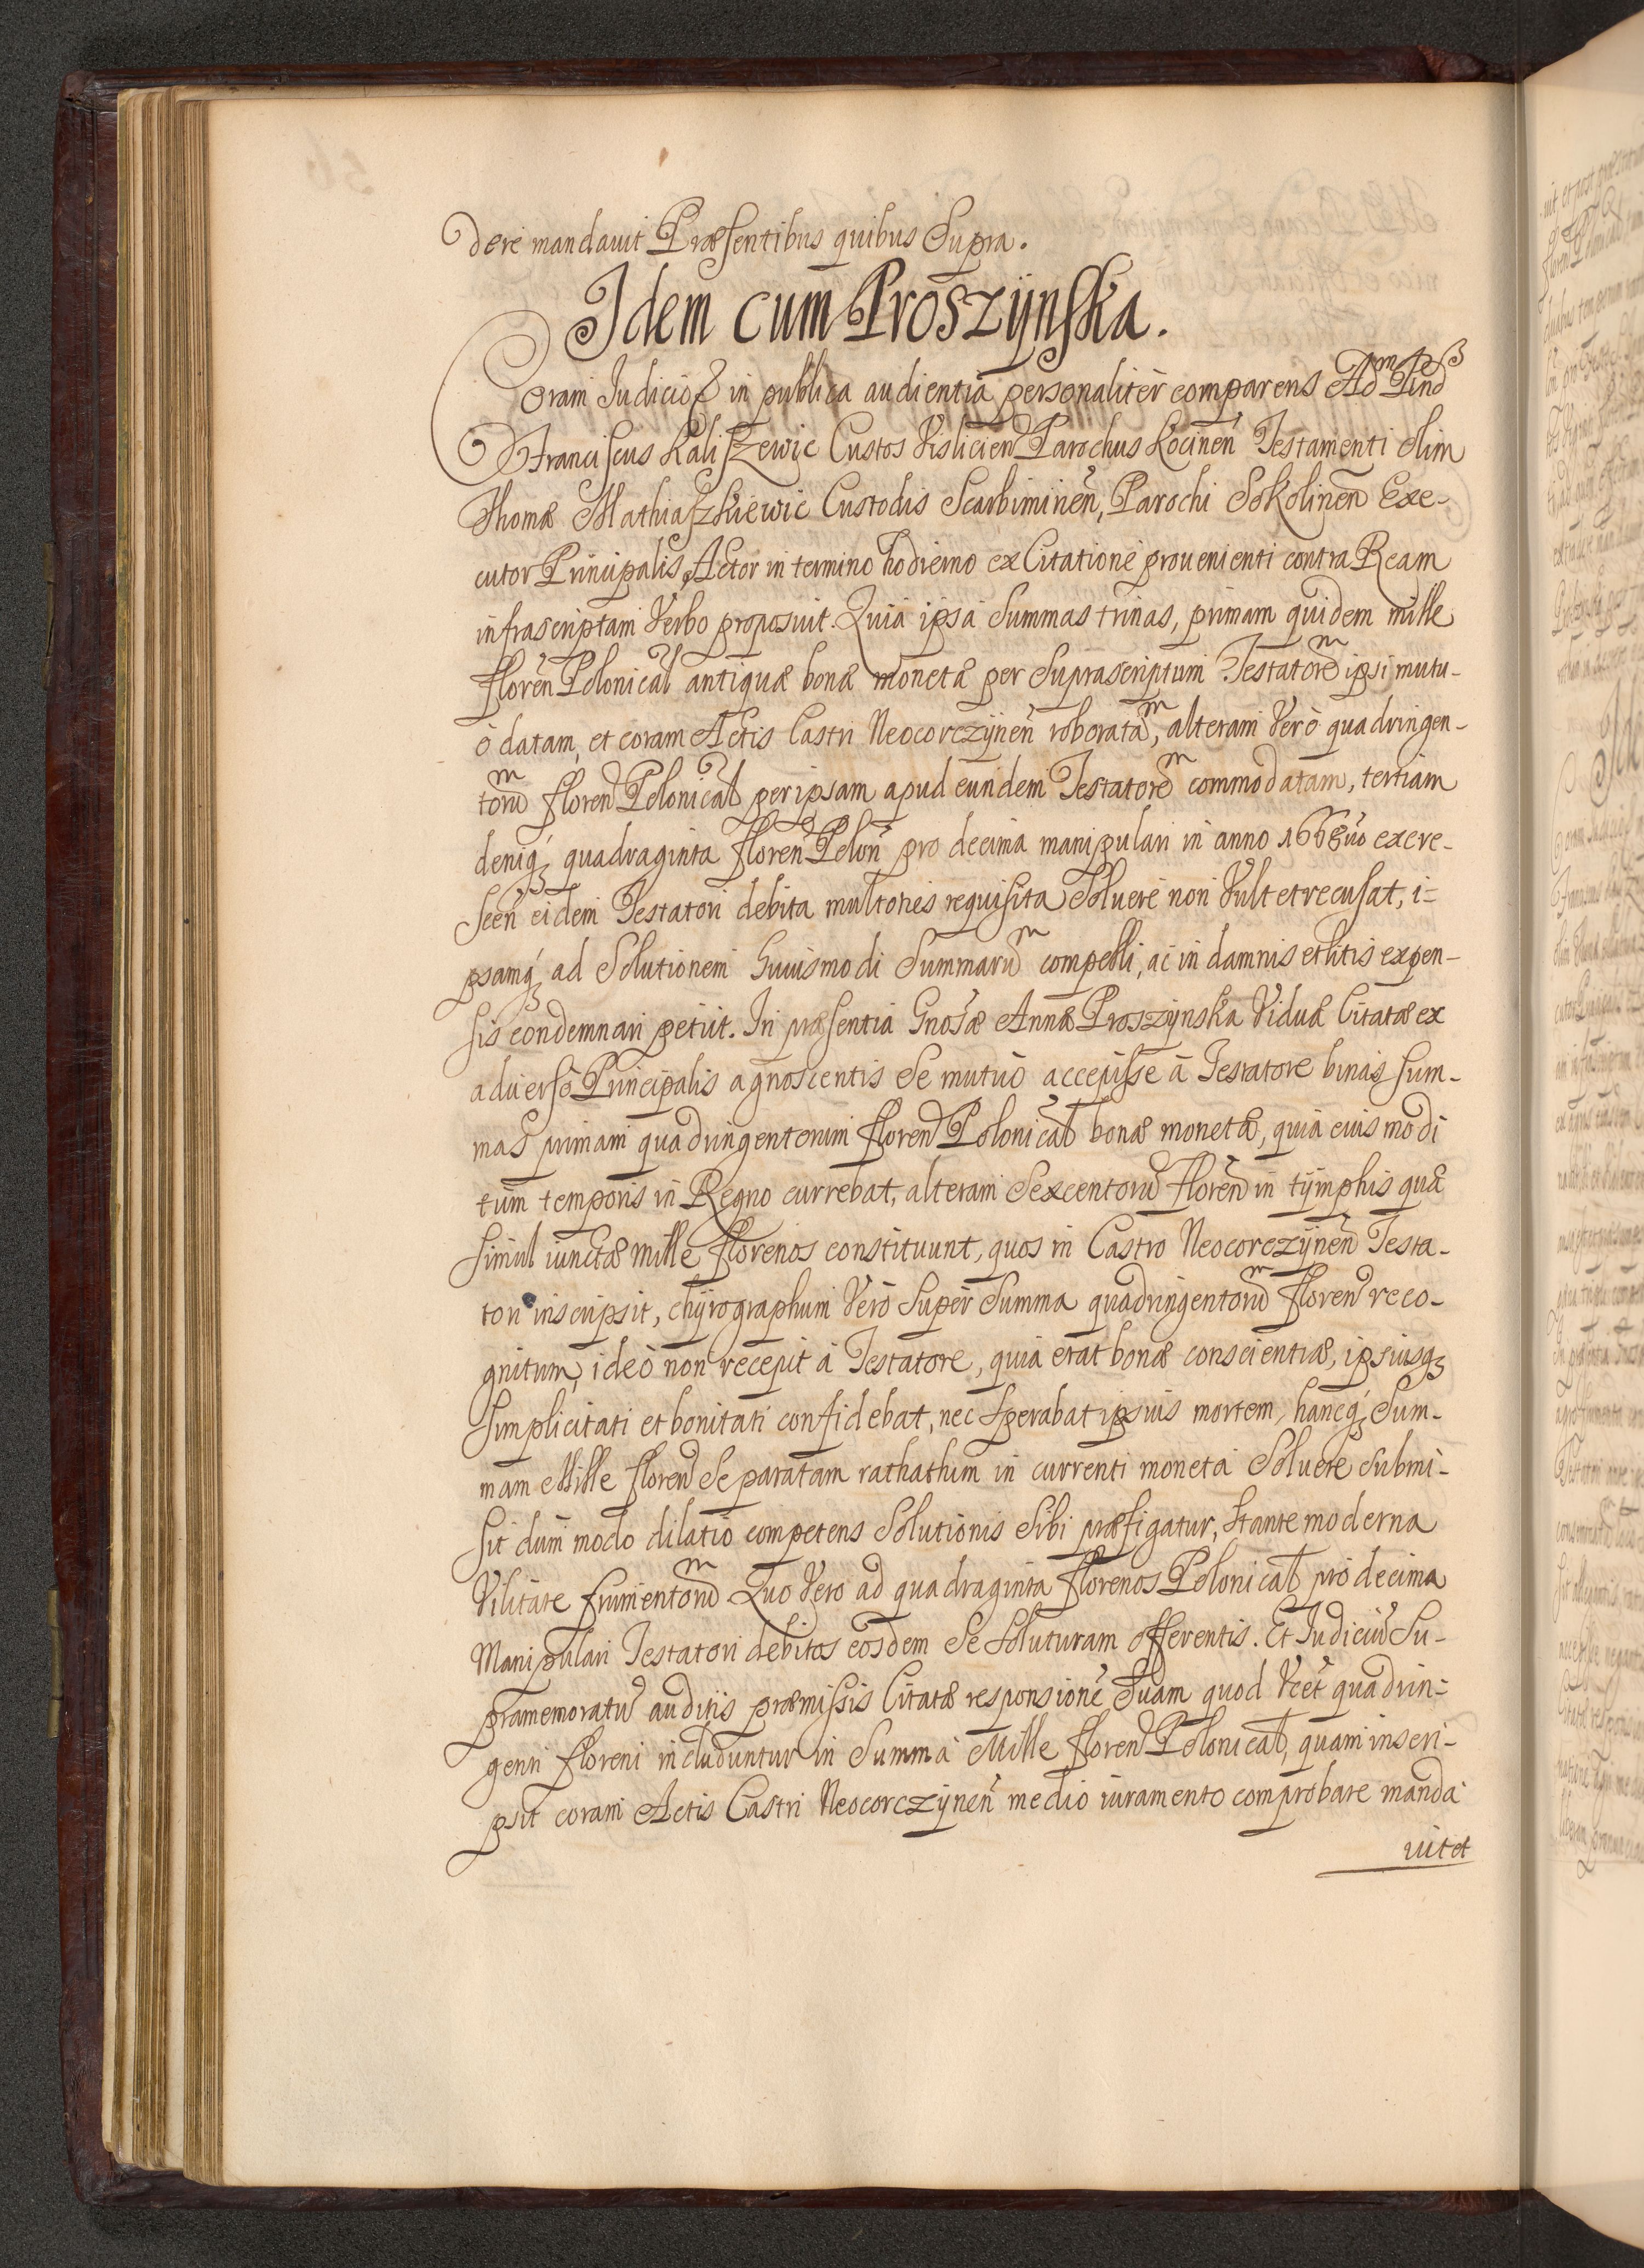 dere mandavit Præsentibus quibus Supra.
Idem cum Proszÿnska.
Coram Judicio in publica audientia personaliter comparens Ad Rnd
Franciscus Kaliszewic Custos Vislicien Parochus Kocinen Testamenti olim
Thomæ Mathiaszkiewic Custodis Scarbiminen, Parochi Sokolinen Exe-
cutor Principalis Actor in termino hodierno ex Citatione provenienti contra Ream
infrascriptam Verbo proposuit. Quia ipsa Summas trinas, primam quidem mille
floren Polonical antiquæ bonæ monetæ per Suprascriptum Testatorem ipsi mutu-
o datam, et coram Actis Castri Neocorczÿnen roboratam, alteram Vero quadringen-
torum floren Polonical per ipsam apud eundem Testatorem commodatam, tertiam
deniq quadraginta floren Polon pro decima manipulari in anno excre-
scen eidem Testatori debita multoties requisita Solvere non Vult et recusat, i-
psamq ad Solutionem Huiusmodi Summarum compelli, ac in damnis et litis expen-
sis condemnari petiit. In præsentia Gnosæ Annæ Proszynska Viduæ Citatæ ex
adverso Principalis agnoscentis Se mutuo accepisse à Testatore binas sum-
mas primam quadringentorum floren Polonical bonæ monetæ, quia eius modi
tum temporis in Regno currebat, alteram Sexcentoru floren in tÿmphis quæ
simul iunctæ mille florenos constituunt, quos in Castro Neocorczÿnen Testa-
tori inscripsit, chÿrographum Vero Super Summa quadringentorum floren reco-
gnitum, ideò non recepit à Testatore, quia erat bonæ conscientiæ, ipsiusq
Simplicitati et bonitati confidebat, nec Sperabat ipsius mortem, hancq Sum-
mam Mille floren Se paratam rathatim in currenti moneta Solvere Submi-
sit dum modo dilatio competens Solutionis Sibi præfigatur, Stante moderna
Vilitate frumentorum Quo Vero ad quadraginta florenos Polonical pro decima
Manipulari Testatori debitos eosdem Se Soluturam offerentis. Et Judiciu Su-
pramemoratu auditis præmissis Citatæ responsione Suam quod Vcet quadrin-
genti floreni includuntur in Summa Mille floren Polonical, quam inscri-
psit coram Actis Castri Neocorczÿnen medio iuramento comprobare manda
vit et